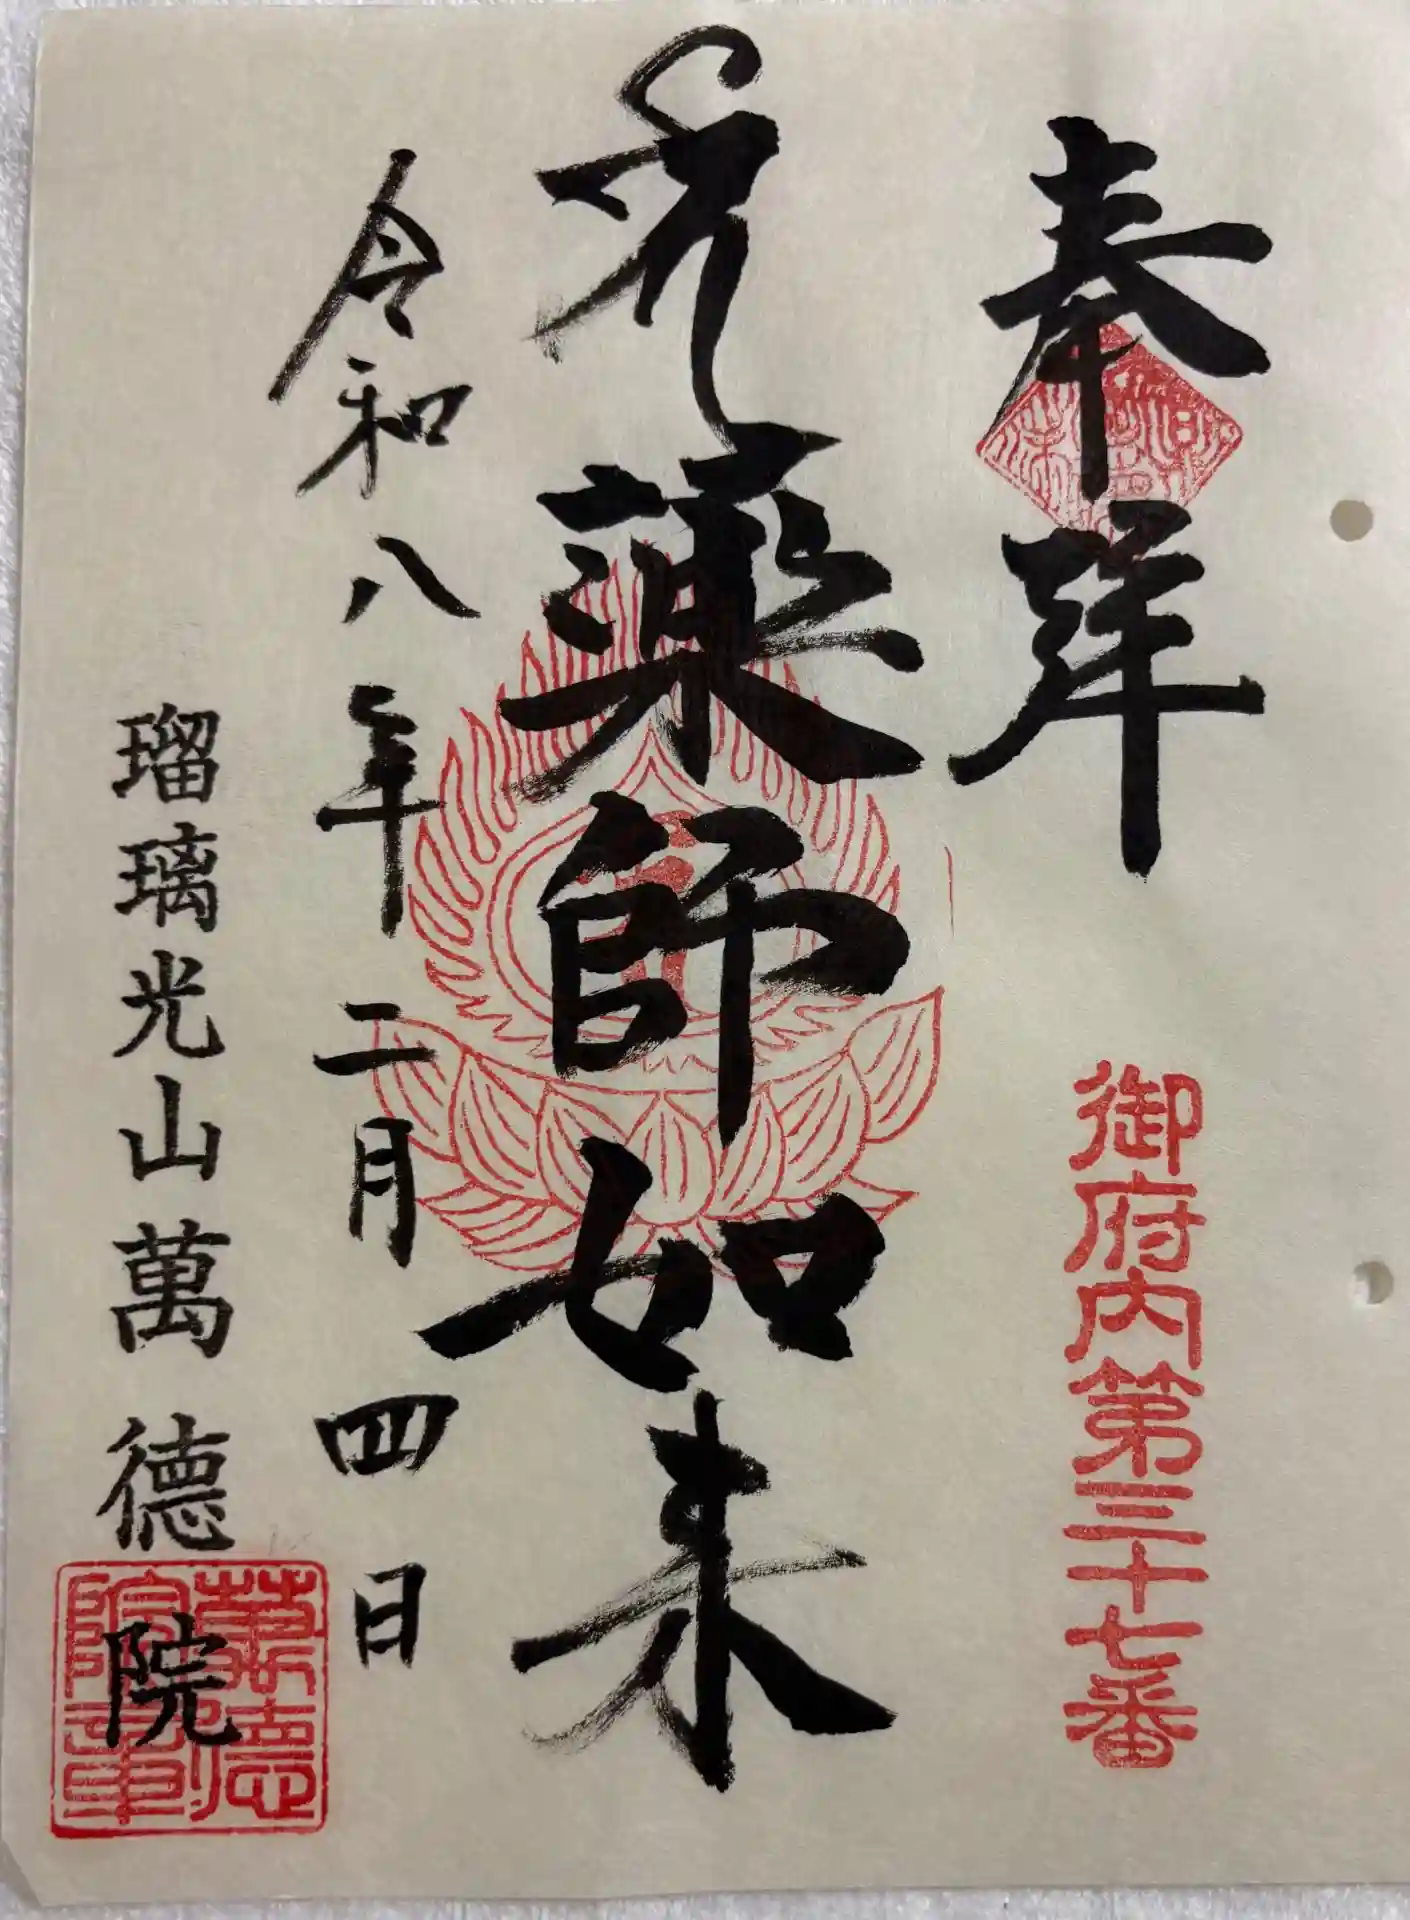 奉拜
御府内第三十七番
薬師如来
令和八年二月四日
瑠璃光山萬德院